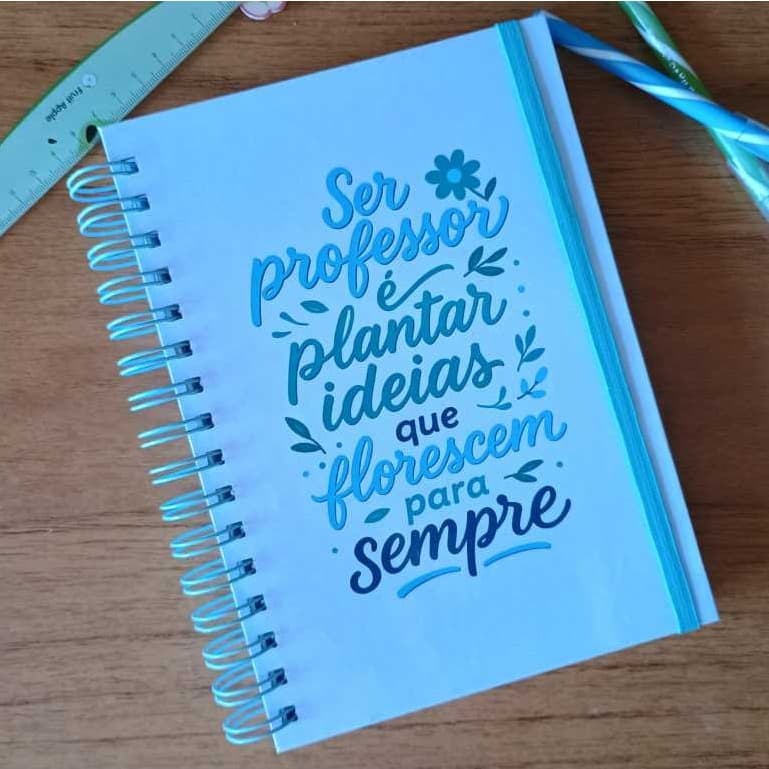 Ser
professor
é
plantar
ideias
que
florescem
para
sempre
Fruit Apple